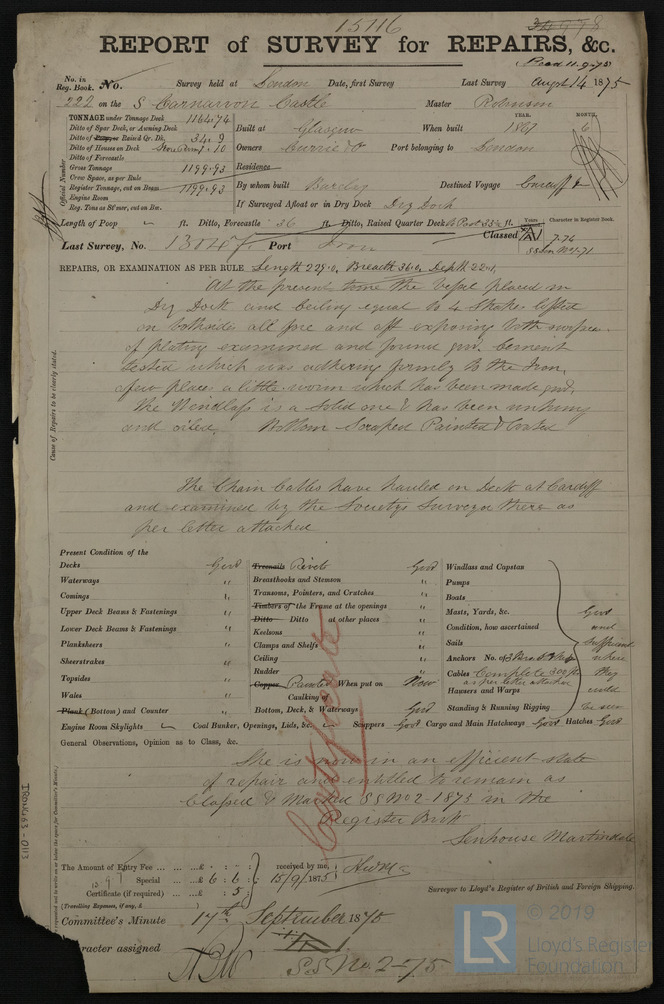 15116
REPORT of SURVEY for REPAIRS, &c.
(Read 11.9.75)
No. in Reg. Book. No. Survey held at London Date, first Survey Last Survey Augst 14 1875
222 on the S Carnarvon Castle Master Robinson
TONNAGE under Tonnage Deck 1164.74
Ditto of Spar Deck, or Awning Deck
Ditto of Raised Qr. Dk. 34.9
Ditto of Houses on Deck .10
Ditto of Forecastle
Gross Tonnage 1199.93
Crew Space, as per Rule
Register Tonnage, cut on Beam 1199.93
Engine Room
Reg. Tons as St'mer, cut on Bm.
Official Number
YEAR. MONTH.
Built at Glasgow When built 1867 6
Owners Currie & Co Port belonging to London
Residence
By whom built Barclay Destined Voyage Cardiff &
If Surveyed Afloat or in Dry Dock Dry Dock
Length of Poop ft. Ditto, Forecastle 36 ft. Ditto, Raised Quarter Deck ft. Years Character in Register Book.
Last Survey, No. 13047 Port Iron Classed A1 7.76
SS Lon No1-71
REPAIRS, OR EXAMINATION AS PER RULE Length 229.0, Breadth 36.0, Depth 22.1,
At the present time the Vessel placed in
Dry Dock and Ceiling equal to 4 Strakes lifted
on bothsides all fore and aft exposing both surfaces
of plating examined and found good. Cement
tested which was adhering firmly to the Iron,
a few places a little worn which has been made good,
the Windlass is a solid one & has been unhung
and oiled. Bottom Scraped Painted & Coated
Cause of Repairs to be clearly stated.
The Chain Cables have hauled on Deck at Cardiff
and examined by the Society's Surveyor there as
per letter attached
Present Condition of the
Decks Good
Waterways "
Comings "
Upper Deck Beams & Fastenings "
Lower Deck Beams & Fastenings "
Planksheers "
Sheerstrakes "
Topsides "
Wales "
Plank (Bottom) and Counter "
Treenails Rivets Good
Breasthooks and Stemson "
Transoms, Pointers, and Crutches "
Timbers of the Frame at the openings "
Ditto Ditto at other places "
Keelsons "
Clamps and Shelfs "
Ceiling "
Rudder "
Copper Painted When put on Now
Caulking of
Bottom, Deck, & Waterways Good
Windlass and Capstan
Pumps
Boats
Masts, Yards, &c.
Condition, how ascertained
Sails
Anchors No. of
Cables Complete 300 fms
as per letter attached
Hausers and Warps
Standing & Running Rigging
Good
and
sufficient
where
they
could
be seen
Engine Room Skylights Coal Bunker, Openings, Lids, &c. Scuppers Good Cargo and Main Hatchways Good Hatches Good
General Observations, Opinion as to Class, &c.
She is now in an efficient state
of repair and entitled to remain as
Classed & Marked SS No 2-1875 in the
Register Book
Certificate
Senhouse Martindale
Surveyor to Lloyd's Register of British and Foreign Shipping.
The Amount of Entry Fee £ - : - :
Special £ 6 : 6 :
Certificate (if required) : 5 :
(Travelling Expenses, if any, £ )
received by me,
15/9/1875
Committee's Minute 17th September 1875
racter assigned A1
S.S. No. 2-75
IRON463-0113
LR
© 2019
Lloyd's Register
Foundation